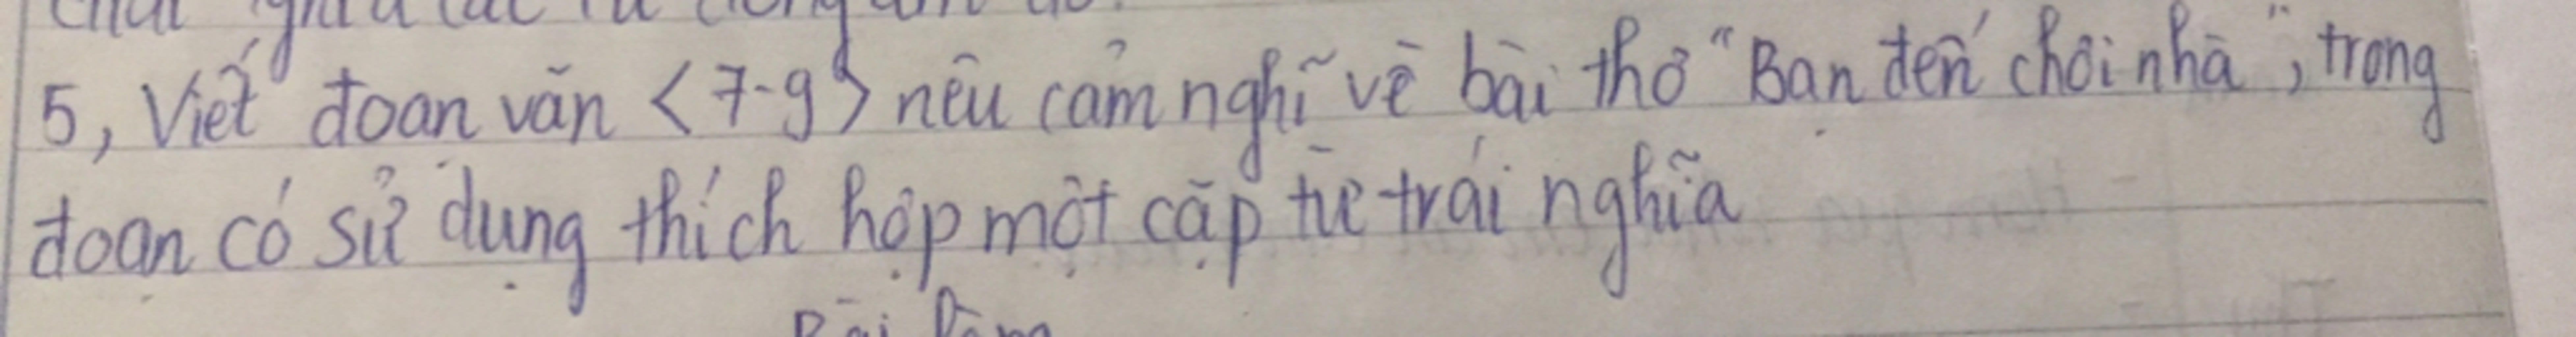 5, Viết đoạn văn <7-9> nêu cảm nghĩ về bài thơ "Bạn đến chơi nhà", trong
đoạn có sử dụng thích hợp một cặp từ trái nghĩa
Bài làm